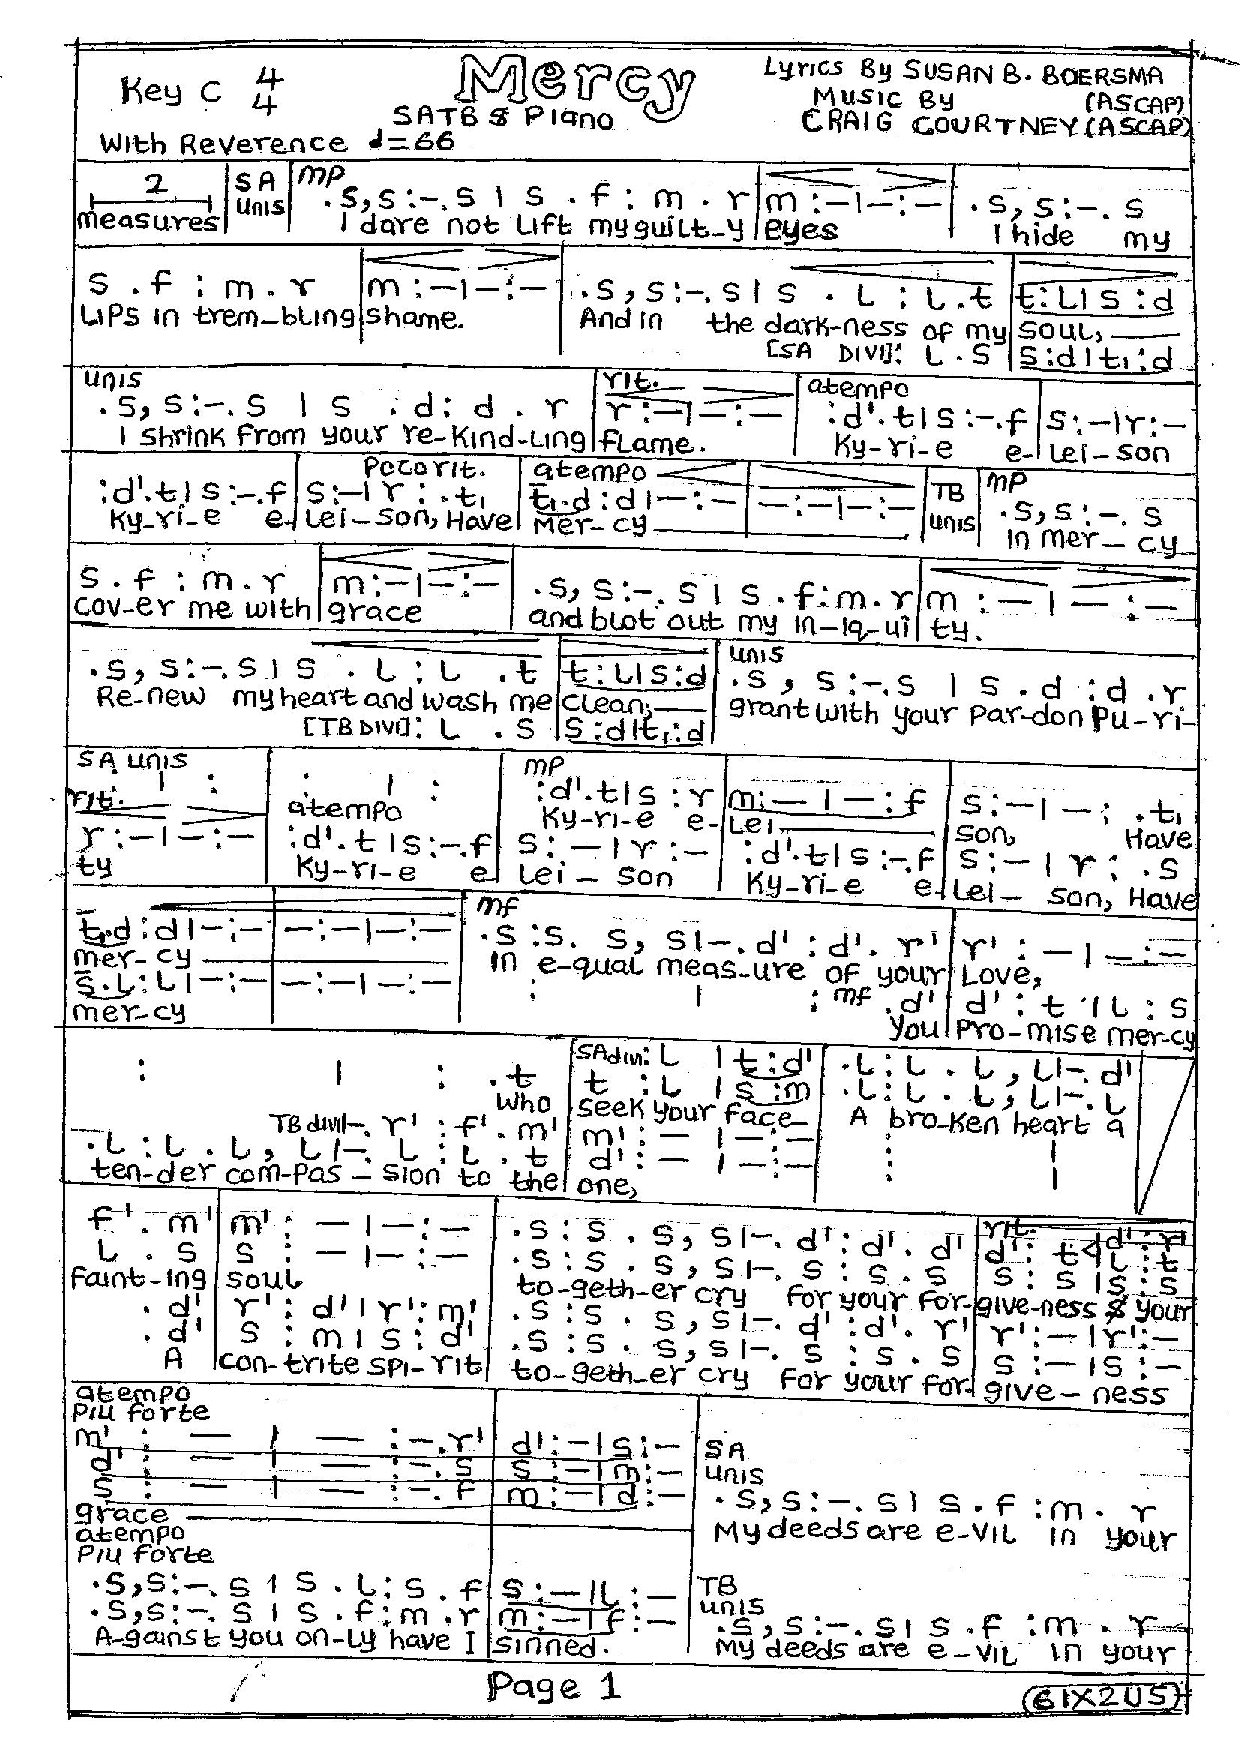 Key C 4/4
Mercy
SATB & Piano
Lyrics By SUSAN B. BOERSMA (ASCAP)
MUSIC BY CRAIG COURTNEY (ASCAP)
With Reverence ♩=66
2 measures | SA unis | mp .s,s:-.s | s .f : m .r | m :-|-:- | .s,s:-.s
I dare not lift my guilt-y eyes I hide my
s .f : m .r | m :-|-:- | .s,s:-.s | s . l : l .t | t:l|s:d
Lips in trem-bling shame. And in the dark-ness of my soul,
[SA DIVI]: l .s | s:d|t₁:d
unis rit. atempo
.s,s:-.s | s .d : d .r | r:-|-:- | :d'.t|s:-.f | s:-|r:-
I shrink from your re-kind-ling flame. Ky-ri-e e-lei-son
Poco rit. atempo TB unis mp
:d'.t|s:-.f | s:-|r:.t₁ | t₁.d:d|-:- | -:-|-:- | .s,s:-.s
Ky-ri-e e-lei-son, Have mer-cy in mer-cy
s .f : m .r | m:-|-:- | .s,s:-.s | s .f:m.r | m:-|-:-
cov-er me with grace and blot out my in-iq-ui ty.
unis
.s,s:-.s | s . l : l .t | t:l|s:d | .s,s:-.s | s .d :d .r
Re-new my heart and wash me clean, grant with your par-don pu-ri-
[TB DIVI]: l .s | s:d|t₁:d
SA unis mp
: | : : | : :d'.t|s:r | m:-|-:f | s:-|-:.t₁
Ky-ri-e e-lei son, Have
rit. atempo
r:-|-:- | :d'.t|s:-.f | s:-|r:- | :d'.t|s:-.f | s:-|r:.s
ty Ky-ri-e e lei-son Ky-ri-e e-lei-son, Have
mf
t₁.d:d|-:- | -:-|-:- | .s:s.s,s|-.d':d'.r' | r':-|-:-
mer-cy in e-qual meas-ure of your love,
s.l:l|-:- | -:-|-:- | : | : mf .d' | d':t|l:s
mer-cy You pro-mise mer-cy
: | : .t | SA divi: l | t:d' | .l:l.l,l|-.d'
t:l|s:m | .l:l.l,l|-.l
Who seek your face A bro-ken heart a
TB divi|-.r':f'.m' | m':-|-:- | : |
.l:l.l,l|-.l:l.t | d':-|-:- | : |
ten-der com-pas-sion to the one,
f'.m' | m':-|-:- | .s:s.s,s|-.d':d'.d' | rit. d':t<|d':r'
l.s | s:-|-:- | .s:s.s,s|-.s:s.s | s:s|s:s
faint-ing soul to-geth-er cry for your for-give-ness & your
.d' | r':d'|r':m' | .s:s.s,s|-.d':d'.r' | r':-|r':-
.d' | s:m|s:d' | .s:s.s,s|-.s:s.s | s:-|s:-
A con-trite spi-rit to-geth-er cry for your for-give-ness
atempo
Piu forte
m':-|-:-.r' | d':-|s:-
d':-|-:-.s | s:-|m:-
s:-|-:-.f | m:-|d:-
grace
SA
unis
.s,s:-.s | s.f:m.r
My deeds are e-vil in your
atempo
Piu forte
.s,s:-.s | s.l:s.f | s:-|l:-
.s,s:-.s | s.f:m.r | m:-|f:-
A-gainst you on-ly have I sinned.
TB
unis
.s,s:-.s | s.f:m.r
My deeds are e-vil in your
Page 1